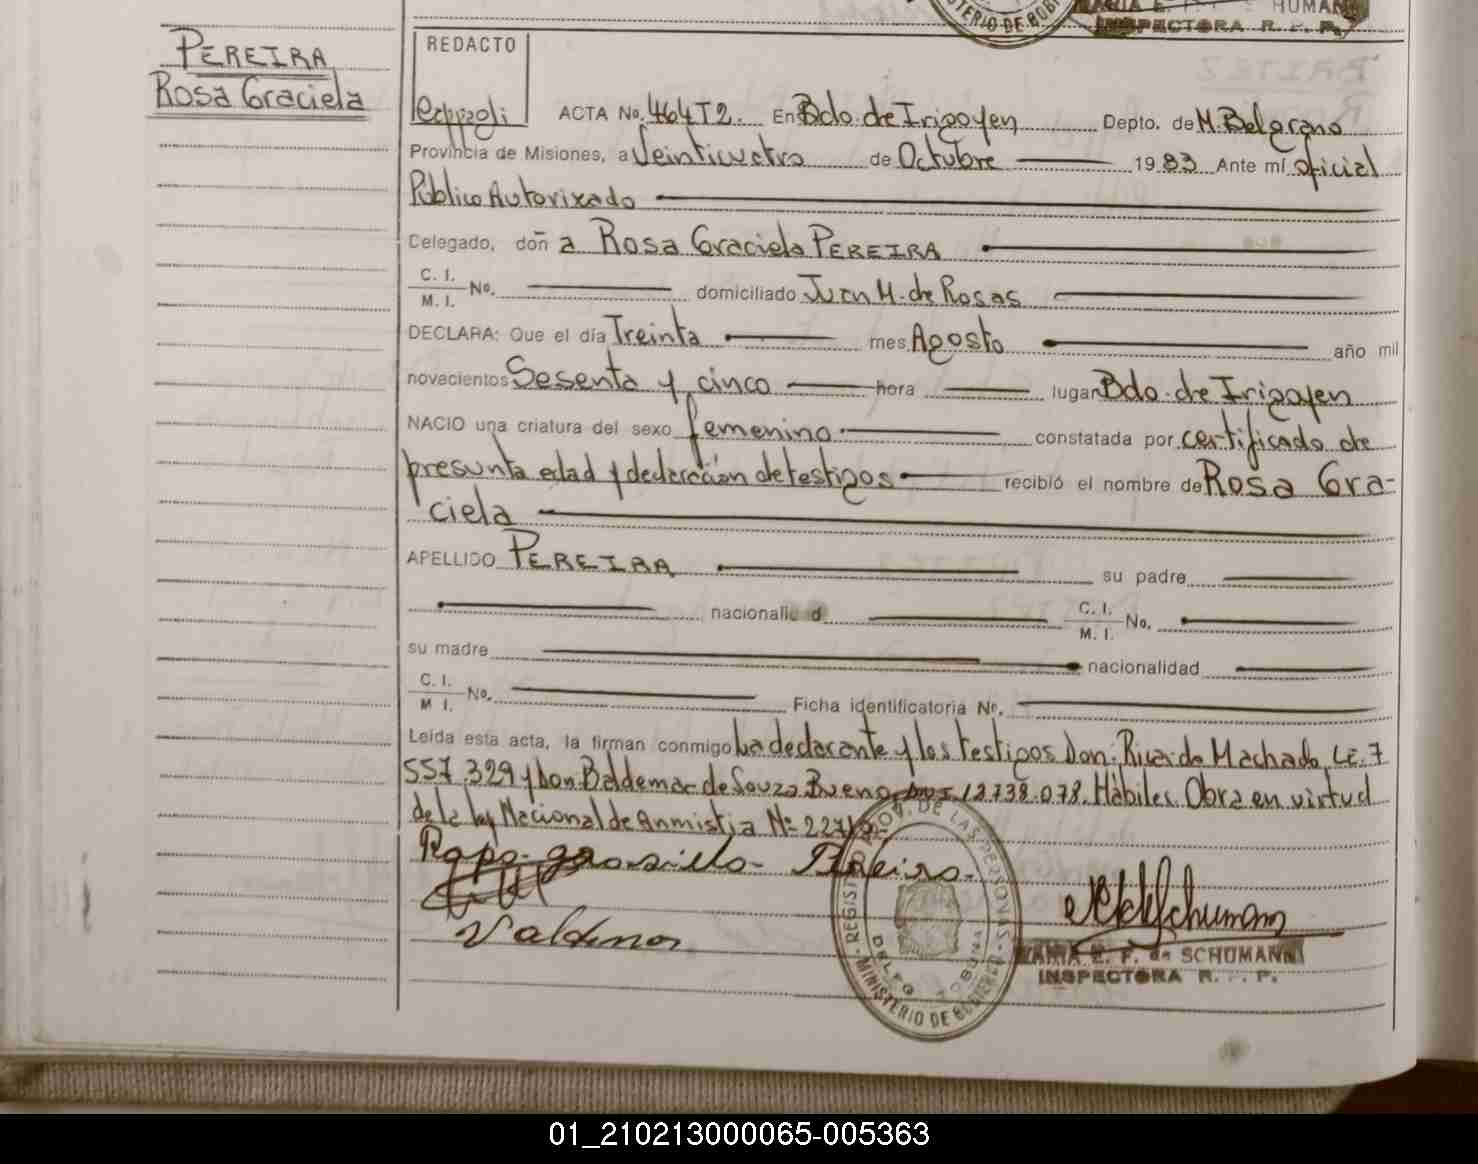 MINISTERIO DE GOBI
MARIA E. SCHUMANN
INSPECTORA R. P. P.
PEREIRA
Rosa Graciela
REDACTO
ACTA No. 464T2. En Bdo. de Irigoyen Depto. de M. Belgrano
Provincia de Misiones, a Veinticuatro de Octubre 1983 Ante mí oficial
Público Autorizado
Celegado, doña Rosa Graciela PEREIRA
C. I.
M. I. No. domiciliado Juan M. de Rosas
DECLARA: Que el día Treinta mes Agosto año mil
novecientos Sesenta y cinco hora lugar Bdo. de Irigoyen
NACIO una criatura del sexo femenino constatada por certificado de
presunta edad y declaración de testigos recibió el nombre de Rosa Gra-
ciela
APELLIDO PEREIRA su padre
nacionalid d C. I.
M. I. No.
su madre nacionalidad
C. I.
M I. No. Ficha identificatoria No.
Leída esta acta, la firman conmigo La declarante y los testigos Don: Ricardo Machado L.E. 7
557.329 y Don Baldemar de Souza Bueno DNI 12738.078. Hábiles. Obra en virtud
de la ley Nacional de Anmistia Nº
Rosa Pereira
Valdemar
REGIST PROV. DE LAS PERSONAS
MINISTERIO DE GOBIERNO
MARIA E. F. de SCHUMANN
INSPECTORA R. P. P.
01_210213000065-005363